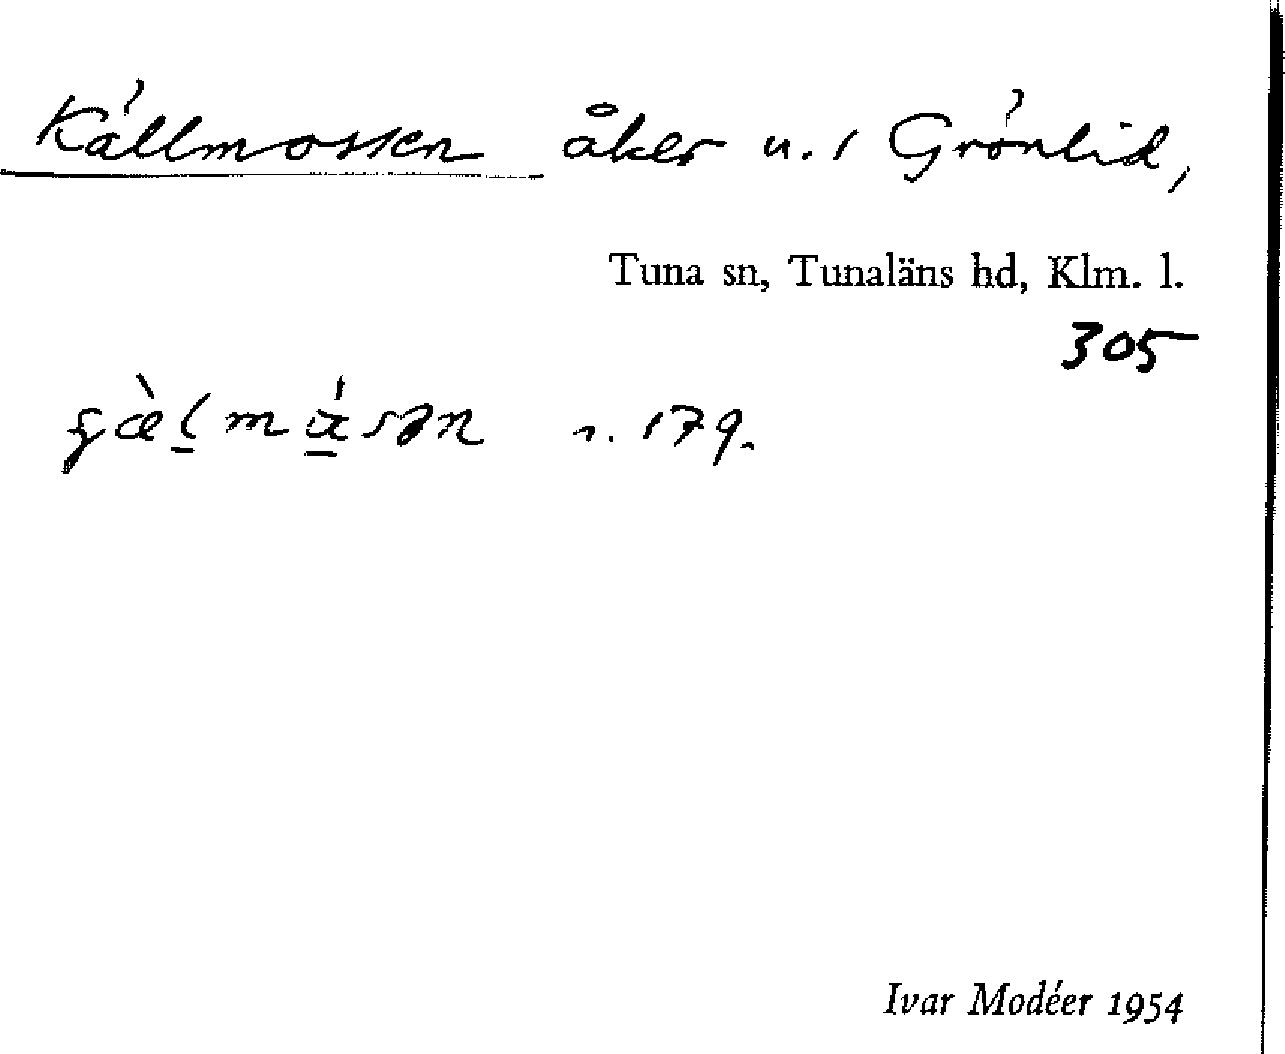 Källmossen åker u. 1 Grönlid,
Tuna sn, Tunaläns hd, Klm. l.
305
s. 179.
Ivar Modéer 1954